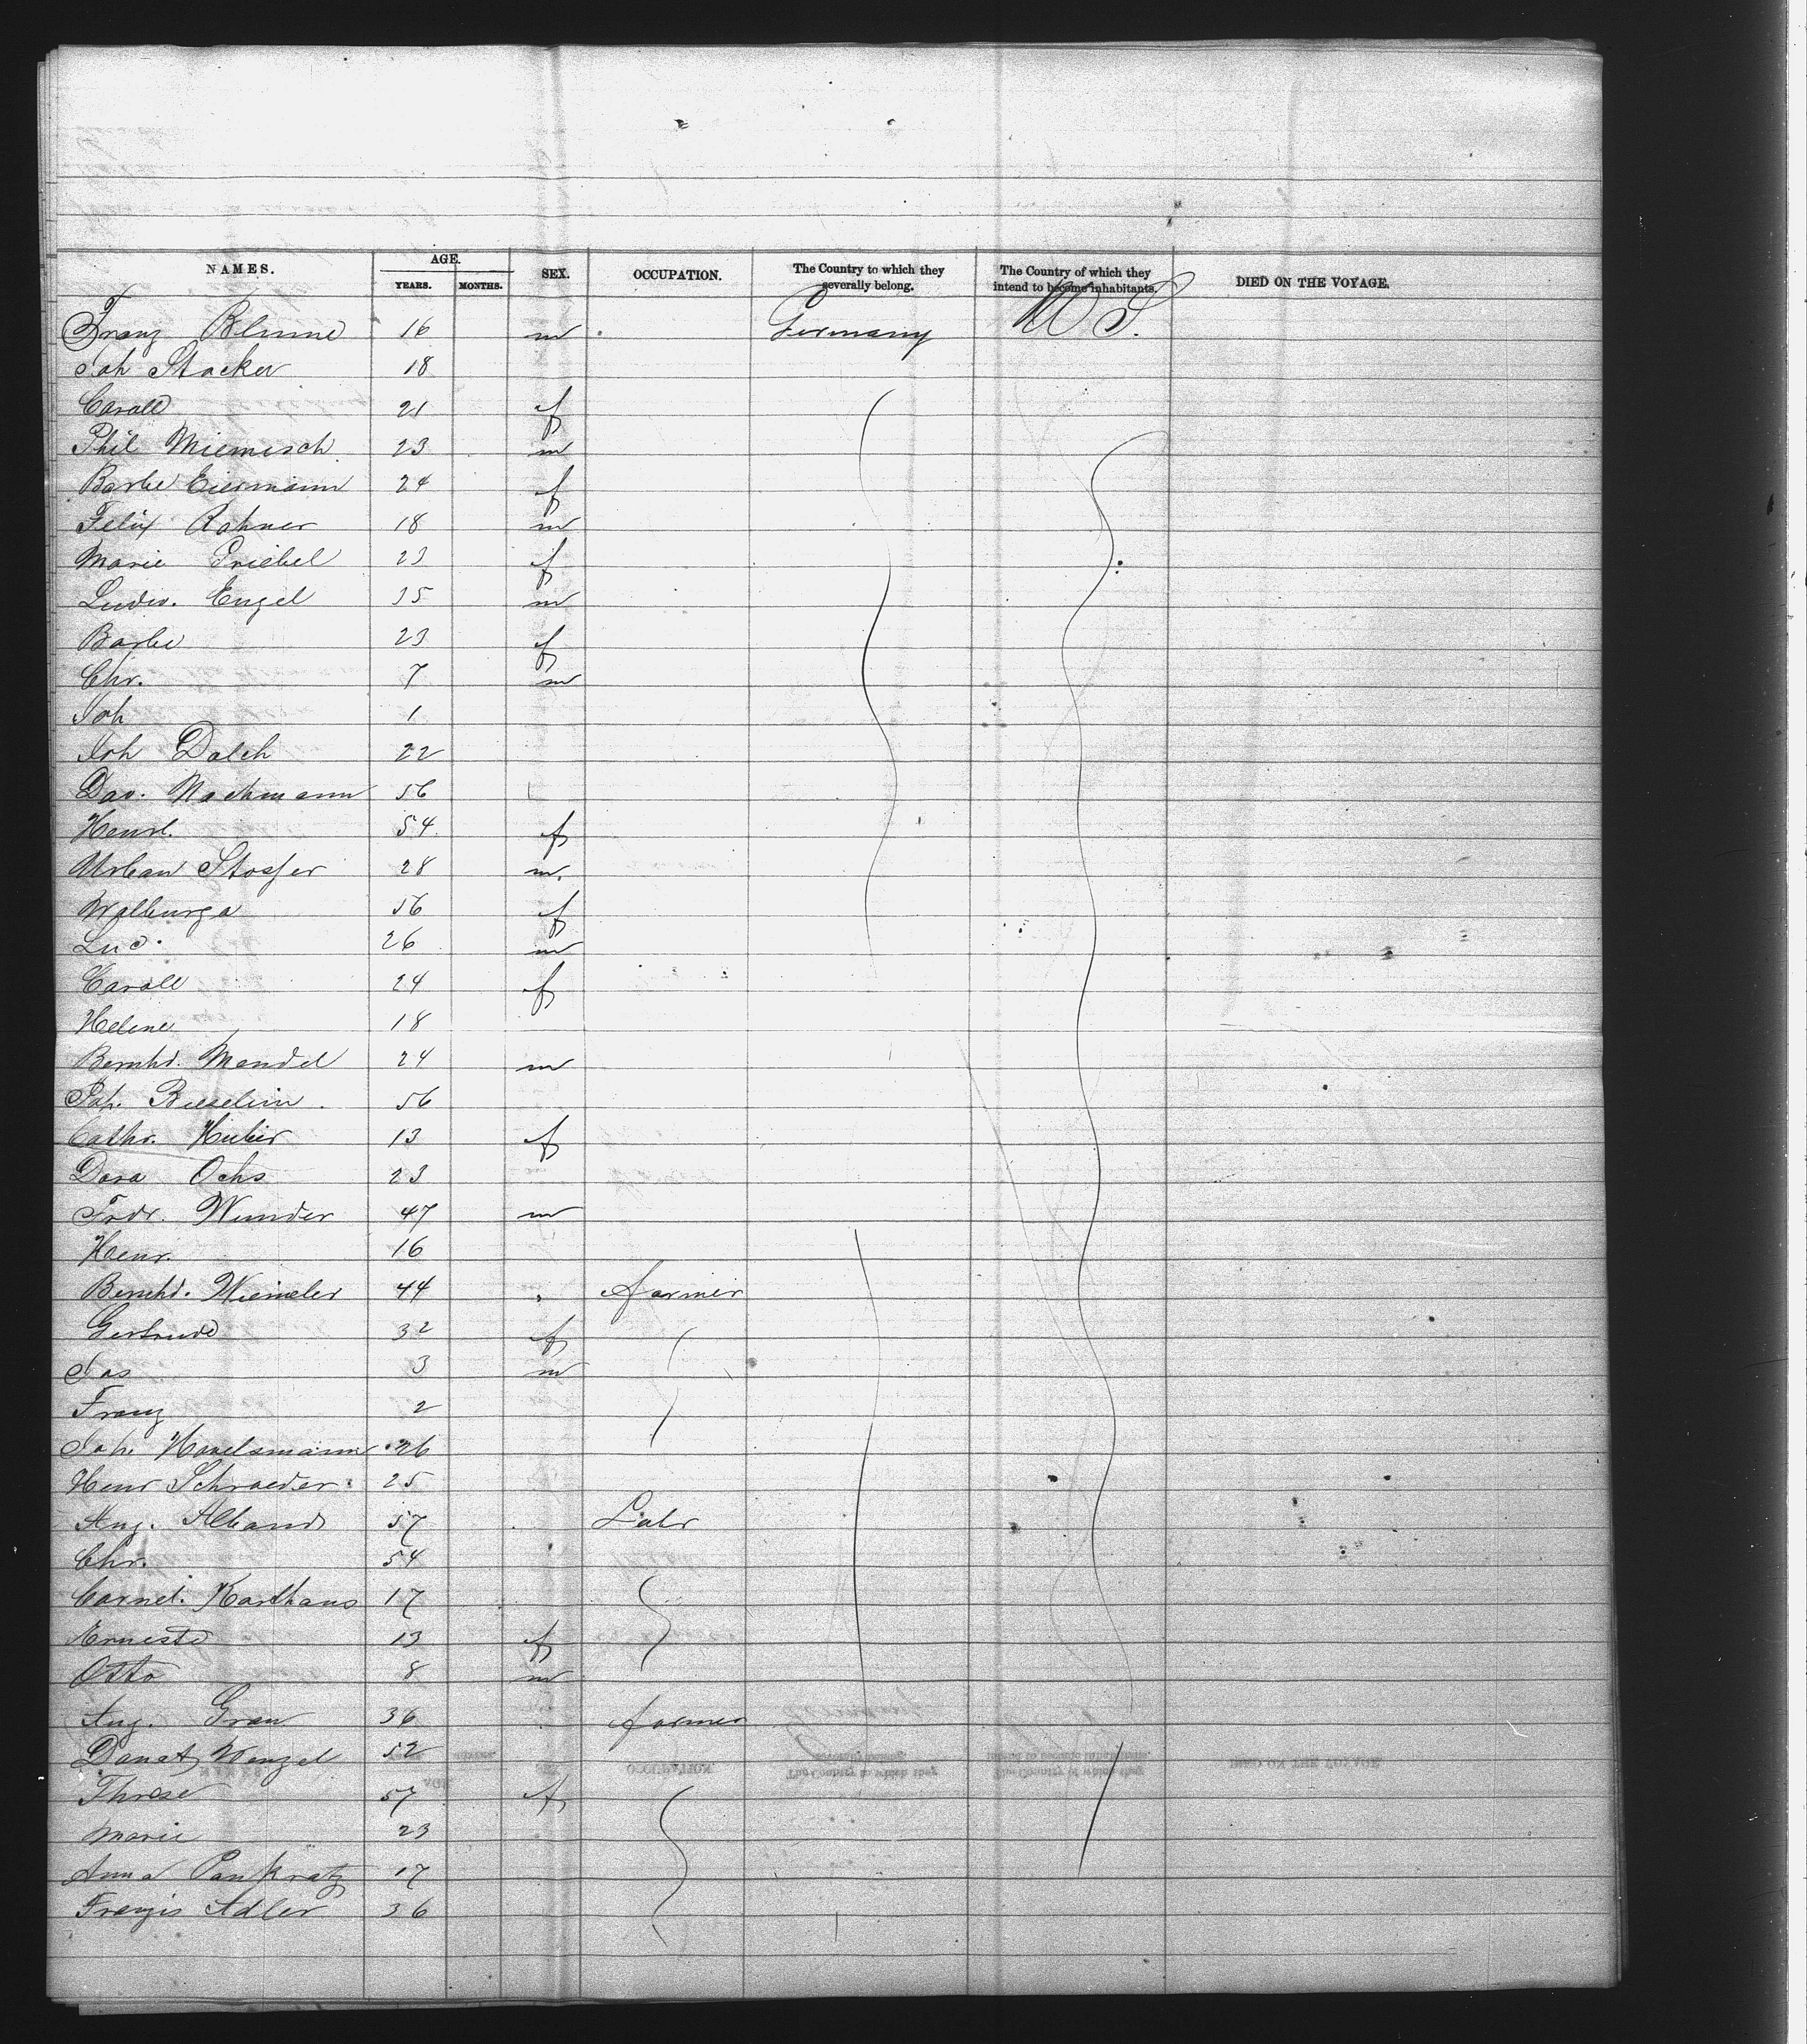 NAMES. AGE. SEX. OCCUPATION. The Country to which they severally belong. The Country of which they intend to become inhabitants. DIED ON THE VOYAGE.
YEARS. MONTHS.
Franz Blume 16 m Germany U S.
Joh Stocker 18
Caroll 21 f
Phil Miemisch 23 m
Barbe Eiermann 24 f
Felix Rohner 18 m
Marie Griebel 23 f
Ludw. Engel 35 m
Barbe 23 f
Chr. 7 m
Joh 1
Joh Dolch 22
Dav. Nachmann 56
Henrl. 54 f
Urban Stosser 28 m.
Walburga 56 f
Luc. 26 m
Caroll 24 f
Helene 18
Bernhd. Mandel 24 m
Joh. Bieselin 56
Cathr. Huber 13 f
Dora Ochs 23
Frdr. Wunder 47 m
Haenr. 16
Bernhd. Wiemeler 44 " farmer
Gertrude 32 f
Jos 3 m
Franz 2
Joh. Havelsmann 26
Henr Schroeder 25
Aug. Alband 57 Labr
Chr. 54
Cornel. Karthaus 17
Erneste 13 f
Otto 8 m
Aug. Grau 36 farmer
Donat Wenzel 52
Threse 57 f
Marie 23
Anna Pankratz 17
Franzis Adler 36